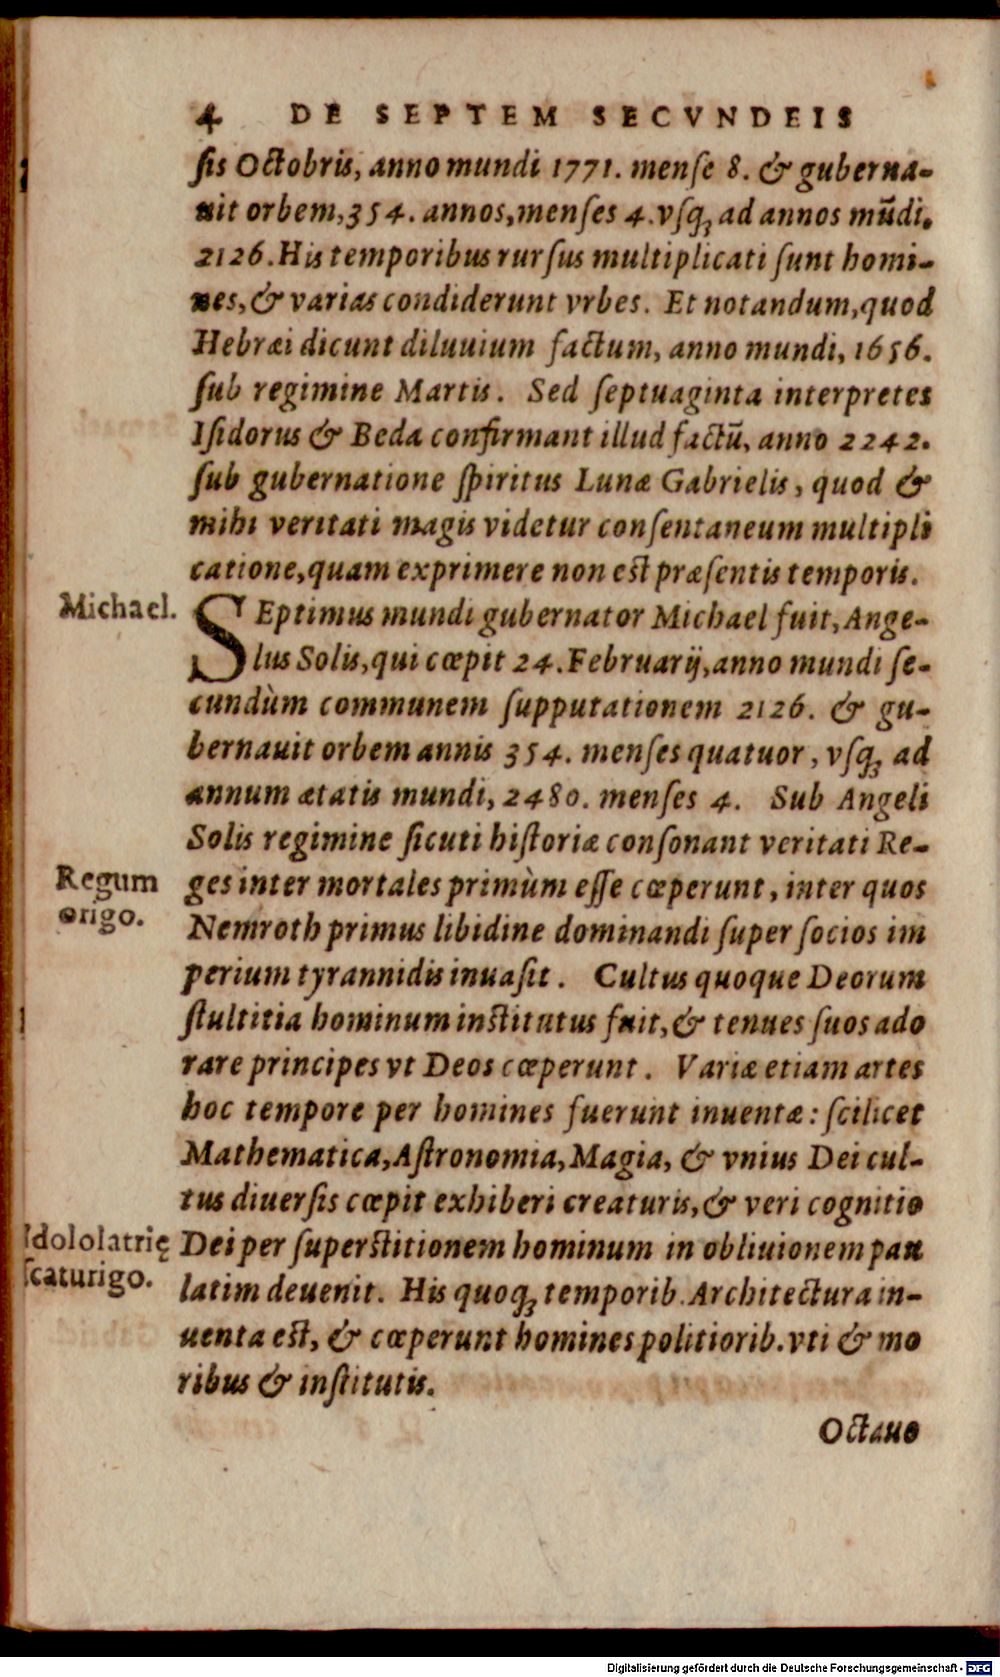 4 DE SEPTEM SECVNDEIS
ſis Octobris, anno mundi 1771. menſe 8. & guberna-
uit orbem, 354. annos, menſes 4. vſq; ad annos mũdi.
2126. His temporibus rurſus multiplicati ſunt homi-
nes, & varias condiderunt vrbes. Et notandum, quod
Hebræi dicunt diluuium factum, anno mundi, 1656.
ſub regimine Martis. Sed ſeptuaginta interpretes
Iſidorus & Beda confirmant illud factũ, anno 2242.
ſub gubernatione ſpiritus Lunæ Gabrielis, quod &
mihi veritati magis videtur conſentaneum multipli
catione, quam exprimere non est præſentis temporis.
Michael.
SEptimus mundi gubernator Michael fuit, Ange-
lus Solis, qui cœpit 24. Februarij, anno mundi ſe-
cundùm communem ſupputationem 2126. & gu-
bernauit orbem annis 354. menſes quatuor, vſq; ad
annum ætatis mundi, 2480. menſes 4. Sub Angeli
Solis regimine ſicuti hiſtoriæ conſonant veritati Re-
Regum
origo.
ges inter mortales primùm eſſe cœperunt, inter quos
Nemroth primus libidine dominandi ſuper ſocios im
perium tyrannidis inuaſit. Cultus quoque Deorum
ſtultitia hominum institutus fuit, & tenues ſuos ado
rare principes vt Deos cœperunt. Variæ etiam artes
hoc tempore per homines fuerunt inuentæ: ſcilicet
Mathematica, Aſtronomia, Magia, & vnius Dei cul-
tus diuerſis cœpit exhiberi creaturis, & veri cognitio
Idololatrię
ſcaturigo.
Dei per ſuperstitionem hominum in obliuionem pau
latim deuenit. His quoq; temporib. Architectura in-
uenta est, & cœperunt homines politiorib. vti & mo
ribus & inſtitutis.
Octauo
Digitalisierung gefördert durch die Deutsche Forschungsgemeinschaft - DFG